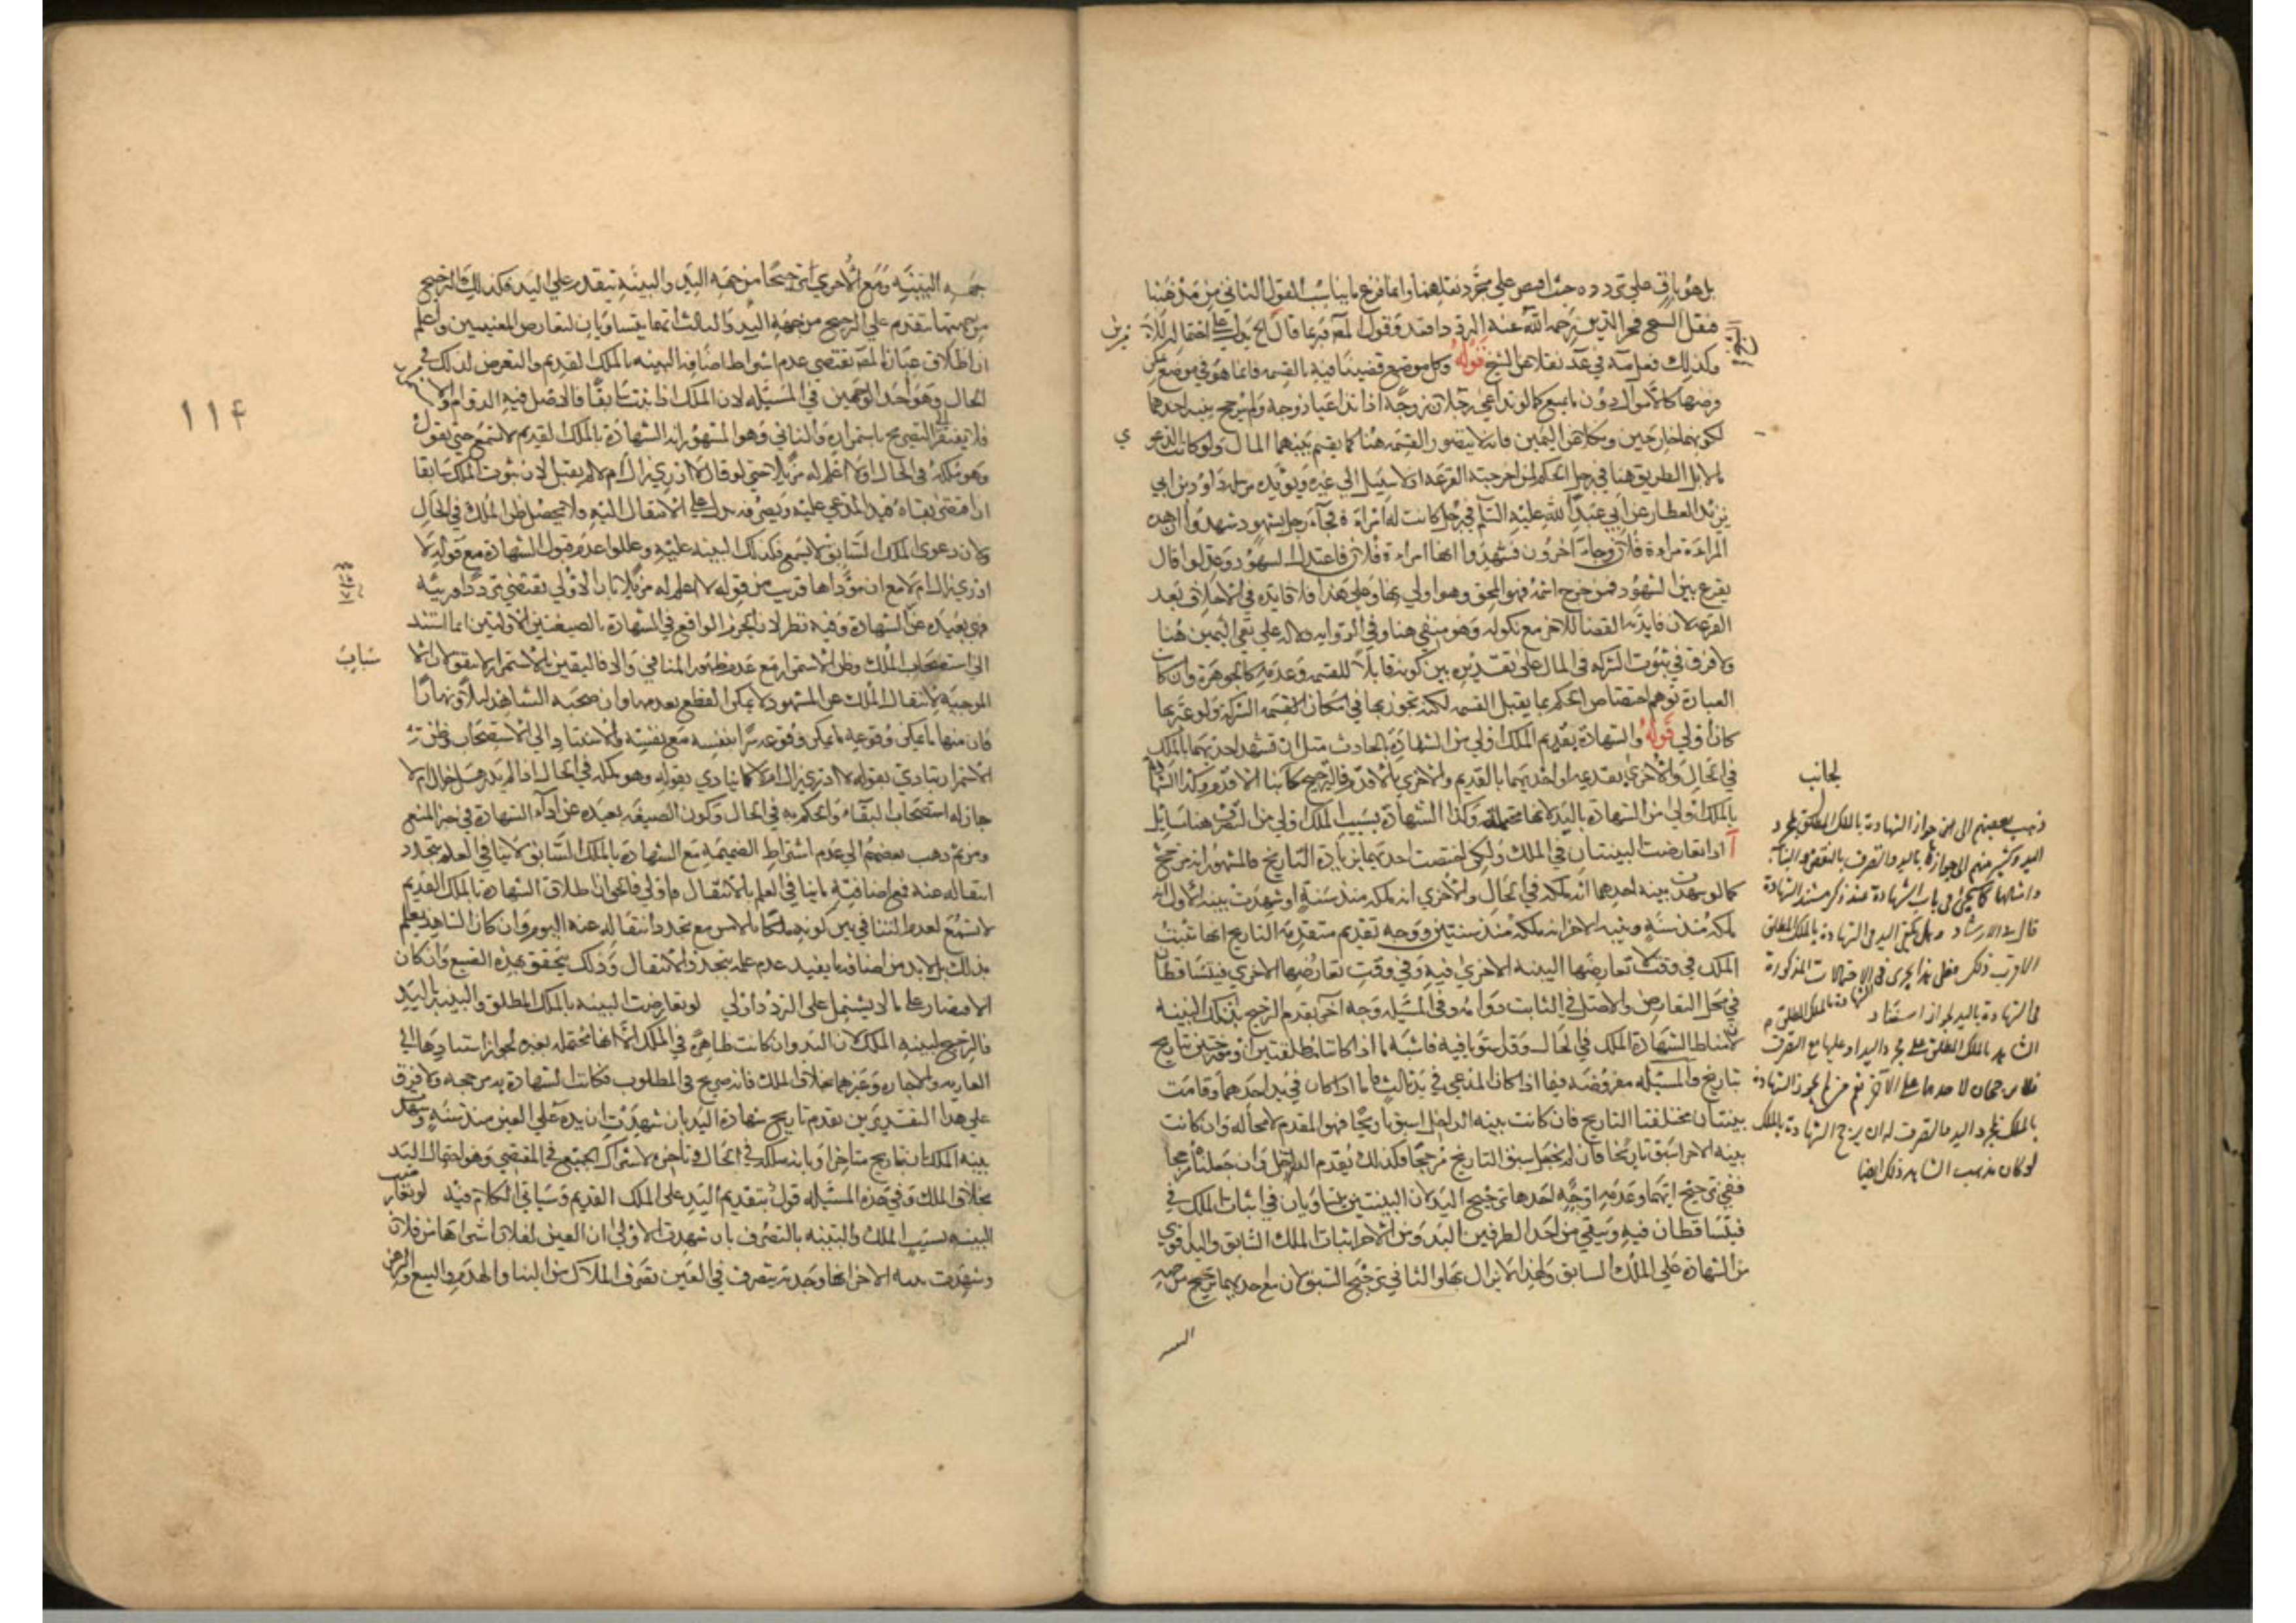 بل هو باق على تردده حيث اقتصر على مجرد نقلهما وانما فرع ما يناسب القول الثاني من مذهبنا
فنقل الشيخ فخر الدين رحمه الله عنه
وكذلك نقلا عن الشيخ قوله وكل موضع قضينا فيه بالقسمة فانما هو في موضع يمكن
فرضها كالاموال دون ما يمتنع كما لو تداعى رجلان زوجة اذا تداعيا زوجة ولم يرجح بينة احدهما
لكونهما خارجين ونكلا عن اليمين فانه لا يتصور القسمة هنا كما يقسم بينهما المال ولو كانت الدعوى
لا بل الطريق هنا في رجل الحكم لمن اخرجته القرعة اذ لا سبيل الى غيره ويؤيده مرسلة داود بن ابي
يزيد العطار عن ابي عبد الله عليه السلم في رجل كانت له امراة فجاء رجل بشهود شهدوا ان هذه
المراة امراة فلان وجاء اخرون فشهدوا انها امراة فلان فاعتدل الشهود وعدلوا قال
يقرع بين الشهود فمن خرج اسمه فهو المحق وهو اولى بها وعلى هذا فلا فايدة في الاحلاف بعد
القرعة لان فايدته القضا للاخر مع نكوله وهو منفي هنا وفي الرواية دلالة على نفي اليمين هنا
ولا فرق في ثبوت الشركة في المال على تقديره بين كونه قابلا للقسمة وعدمه كالجوهرة وان كان
العبارة توهم اختصاص الحكم بما يقبل القسمة لكنه تجوز بها في امكان القسمة الشركة ولو عبر بها
كان اولى قوله والشهادة بقديم الملك اولى من الشهادة بالحادث مثل ان تشهد احديهما بالملك
في الحال والاخرى بقديمه او احديهما بالقديم والاخرى بالاقدم فالترجيح لجانب الاقدم وكذا الشهادة
بالملك اولى من الشهادة باليد لانها محتملة وكذا الشهادة بسبب الملك اولى من التصرف هنا مسائل
آ اذا تعارضت البينتان في الملك ولكن اختصت احديهما بزيادة التاريخ فالمشهور انه ترجح
كما لو شهدت بينة احدهما انه ملكه في الحال والاخرى انه ملكه منذ سنة او شهدت بينة الاول انه
ملكه منذ سنة وبينة الاخر انه ملكه منذ سنتين ووجه تقديم متقدمة التاريخ انها تثبت
الملك في وقت لا تعارضها البينة الاخرى فيه وفي وقت تعارضها الاخرى فيتساقطان
في محل التعارض والاصل في الثابت دوامه وفي المسئلة وجه آخر بعدم الترجيح بذلك البينة
لان مناط الشهادة الملك في الحال وقد استويا فيه فاشبه ما اذا كانتا مطلقتين او مورختين تاريخ
بتاريخ والمسئلة مفروضة فيما اذا كان المدعى في يد ثالث فاما اذا كان في يد احدهما وقامت
بينتان مختلفتا التاريخ فان كانت بينة الداخل اسبق تاريخا فهو المقدم لا محالة وان كانت
بينة الاخر اسبق تاريخا فان لم نجعل سبق التاريخ مرجحا فكذلك يقدم الداخل وان جعلناه مرجحا
ففي ترجيح ايهما وعدمه اوجه احدها ترجيح اليد لان البينتين يتساويان في اثبات الملك في
فيتساقطان فيه ويبقى من احد الطرفين اليد ومن الاخر اثبات الملك السابق واليد اقوى
من الشهادة على الملك السابق ولهذا لا يزال بها والثاني ترجيح السبق لان مع احديهما ترجيح من جهة
لجانب
ذهب بعضهم الى جواز الشهادة بالملك المطلق بمجرد
اليد وكثير منهم الى جوازها باليد والتصرف بالنقض والبناء
وامثالها كما يجئ في باب الشهادة عند ذكر مستند الشهادة
قال في الارشاد وهل يكفي اليد في الشهادة بالملك المطلق
الاقرب ذلك فعلى هذا يجرى في الاحتمالات المذكورة
في الشهادة باليد لجواز استناد الشهادة بالملك المطلق
الشاهد بالملك المطلق على مجرد اليد او عليها مع التصرف
فلا رجحان لاحدهما على الآخر نعم من لم يجوز الشهادة
بالملك بمجرد اليد والتصرف له ان يرجح الشهادة بالملك
لو كان مذهب الشاهد ذلك ايضا
١١٤
جهة البينة ومع الاخرى ترجيحا من جهة اليد والبينة تتقدم على اليد فكذلك الترجيح
من جهتها يتقدم على الترجيح من جهة اليد والثالث انهما يتساويان لتعارض المعنيين واعلم
ان اطلاق عبارة المص يقتضي عدم اشتراط اضافة البينة بالملك القديم والتعرض لذلك في
الحال وهو احد الوجهين في المسئلة لان الملك اذا ثبت سابقا فالاصل فيه الدوام
فلا يفتقر الى التصريح باستمراره والثاني وهو المشهور ان الشهادة بالملك القديم لا تسمع حتى يقول
وهو ملكه في الحال او لا اعلم له مزيلا حتى لو قال لا ادري زال ام لا لم يقبل لان ثبوت الملك سابقا
ان اقتضى بقاءه فيد المدعى عليه وتصرفه يدل على الانتقال اليه فلا يحصل ظن الملك في الحال
ولان دعوى الملك السابق لا يسمع فكذلك البينة عليه وعللوا عدم قبول الشهادة مع قوله لا
ادري زال ام لا مع ان مؤداها قريب من قوله لا اعلم له مزيلا بان الاولى تقتضي ترددا وريبة
فهي بعيدة عن الشهادة وفيه نظر لان الجزم الواقع في الشهادة بالصيغتين الاولتين انما استند
الى استصحاب الملك وظن الاستمرار مع عدم ظهور المنافي والا فاليقين بالاستمرار لا يتفق لان الاسباب
الموجبة لانتقال الملك عن المشهود لا يمكن القطع بعدمها وان صحبه الشاهد ليلا ونهارا
فان منها ما يمكن وقوعه ما يمكن وقوعه سرا بنفسه مع نفسه والاستناد الى الاستصحاب وظن
الاستمرار يتادى بقوله لا ادري زال ام لا كما يتادى بقوله وهو ملكه في الحال اذا لم يدر هل زال ام لا
جاز له استصحاب البقاء والحكم به في الحال وكون الصيغة بعيدة عن اداء الشهادة في حيز المنع
ومن ثم ذهب بعضهم الى عدم اشتراط الضميمة مع الشهادة بالملك السابق لا ينافي العلم بتجدد
انتقاله عنه فمع اضافته ما ينافي العلم بالانتقال اولى فالحق ان اطلاق الشهادة بالملك القديم
لا تسمع لعدم التنافي بين كونه ملكا بالامس مع تجدد انتقاله عنه اليوم وان كان الشاهد يعلم
بذلك بل لا بد من اضافة ما يفيد عدم علمه بتجدد الانتقال وذلك يتحقق بهذه الصيغ وان كان
الاقتصار على ما لا يشتمل على التردد اولى لو تعارضت البينة بالملك المطلق والبينة باليد
فالترجيح لبينة الملك لان اليد وان كانت ظاهرة في الملك الا انها محتملة بغيره لجواز استنادها الى
العارية والاجارة وغيرهما بخلاف الملك فانه صريح في المطلوب فكانت الشهادة به مرجحة ولا فرق
على هذا التقدير بين تقدم تاريخ شهادة اليد بان شهدت ان يده على العين منذ سنة وشهدت
بينة الملك بتاريخ متاخر او بانه ملكه في الحال وتاخره لاشتراك الجميع في المقتضي وهو احتمال اليد
بخلاف الملك وفي هذه المسئلة قول بتقديم اليد على الملك القديم وسياتي الكلام فيه لو تعارضت
البينة بسبب الملك والبينة بالتصرف بان شهدت الاولى ان العين لفلان اشتراها من فلان
وشهدت بينة الاخر انها وجدته يتصرف في العين تصرف الملاك من البنا والهدم والبيع والرهن